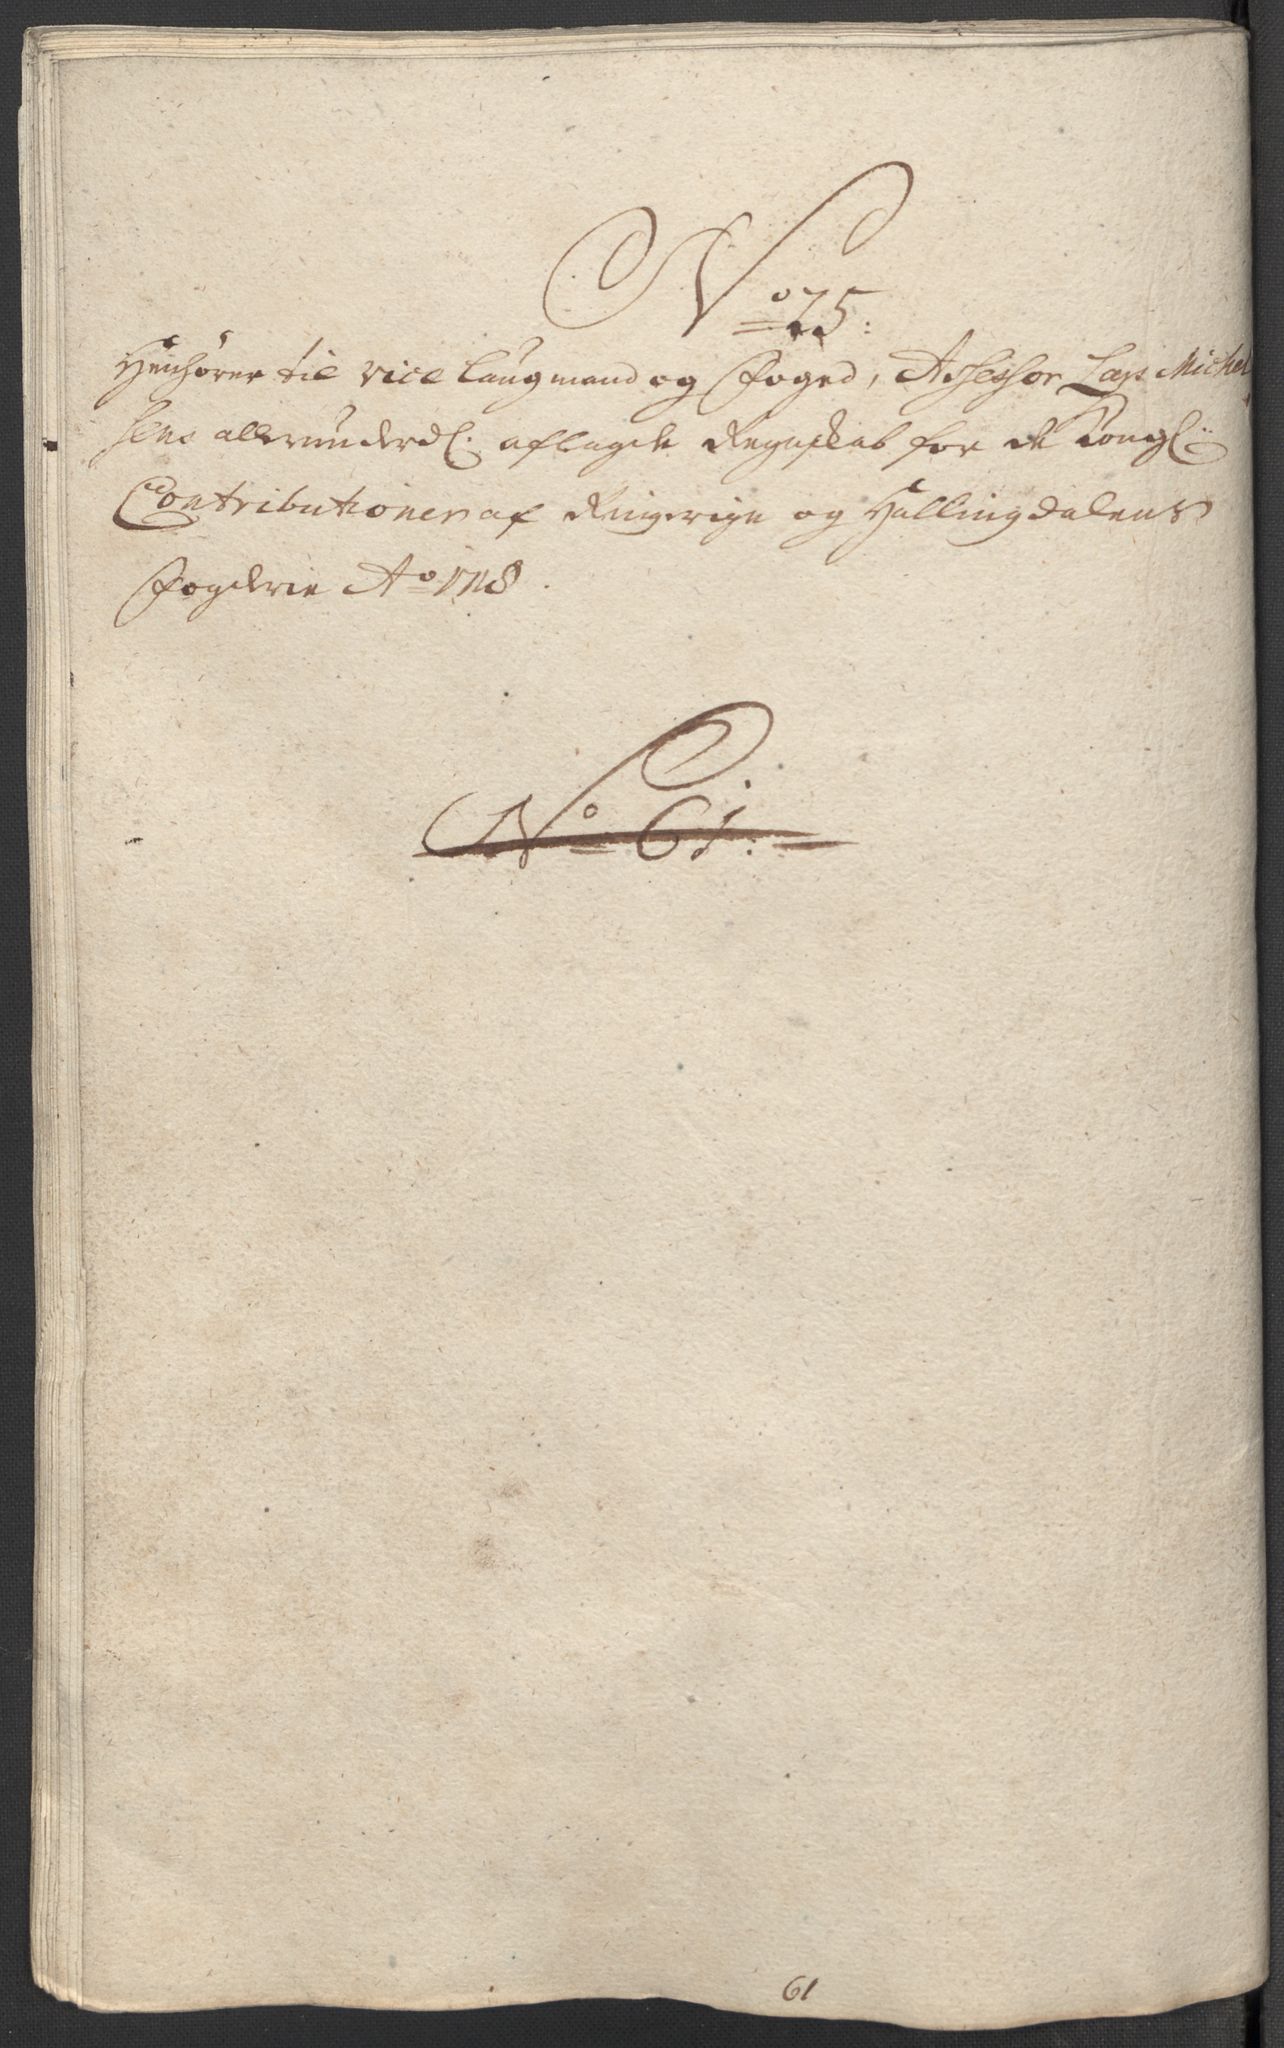 No 25:
Henhører til vice Laugmand og Foged, Assessor Lars Michel
sens allerunderd: aflagde Regnskab for de Kongl:
Contributioner af Ringerige og Hallingdalens
Fogderie Ao 1718.
No 61:
61